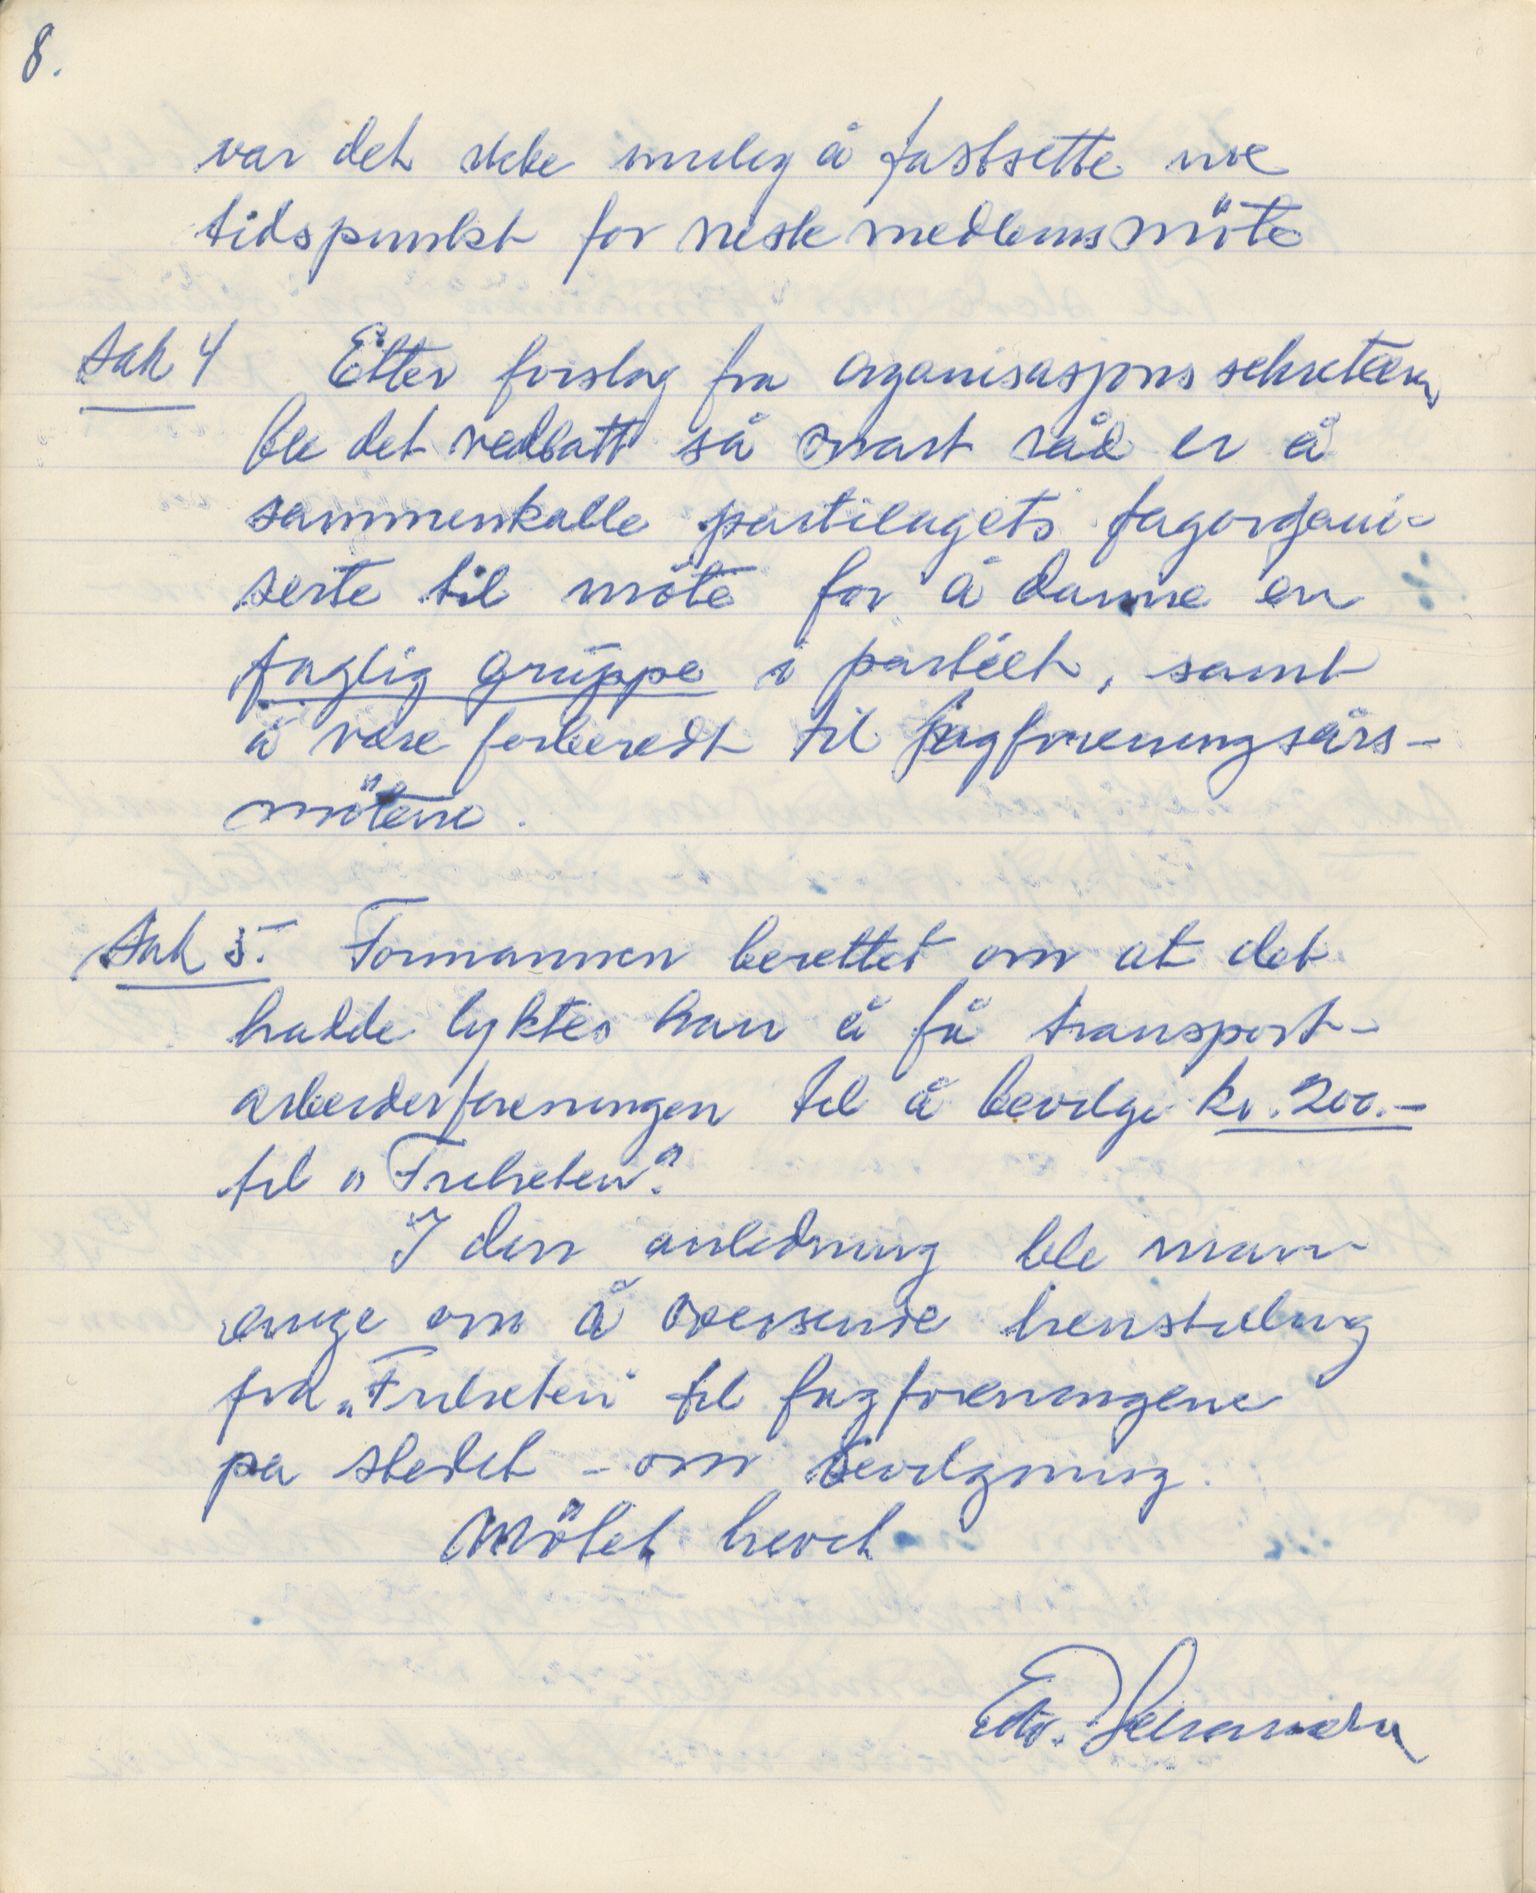 8.
var det ikke mulig å fastsette noe
tidspunkt for neste medlemsmöte
Sak 4 Etter forslag fra organisasjonssekretæren
ble det vedtatt så snart råd er å
sammenkalle partilagets fagorgani-
serte til möte for å danne en
faglig gruppe i partiet, samt
å være forberedt til fagforeningsårs-
mötene.
Sak 5. Formannen berettet om at det
hadde lyktes han å få transport-
arbeiderforeningen til å bevilge kr. 200.-
til „Friheten".
I den anledning ble man
enige om å oversende henstilling
fra „Friheten" til fagforeningene
på stedet - om bevilgning.
Mötet hevet
Edv.